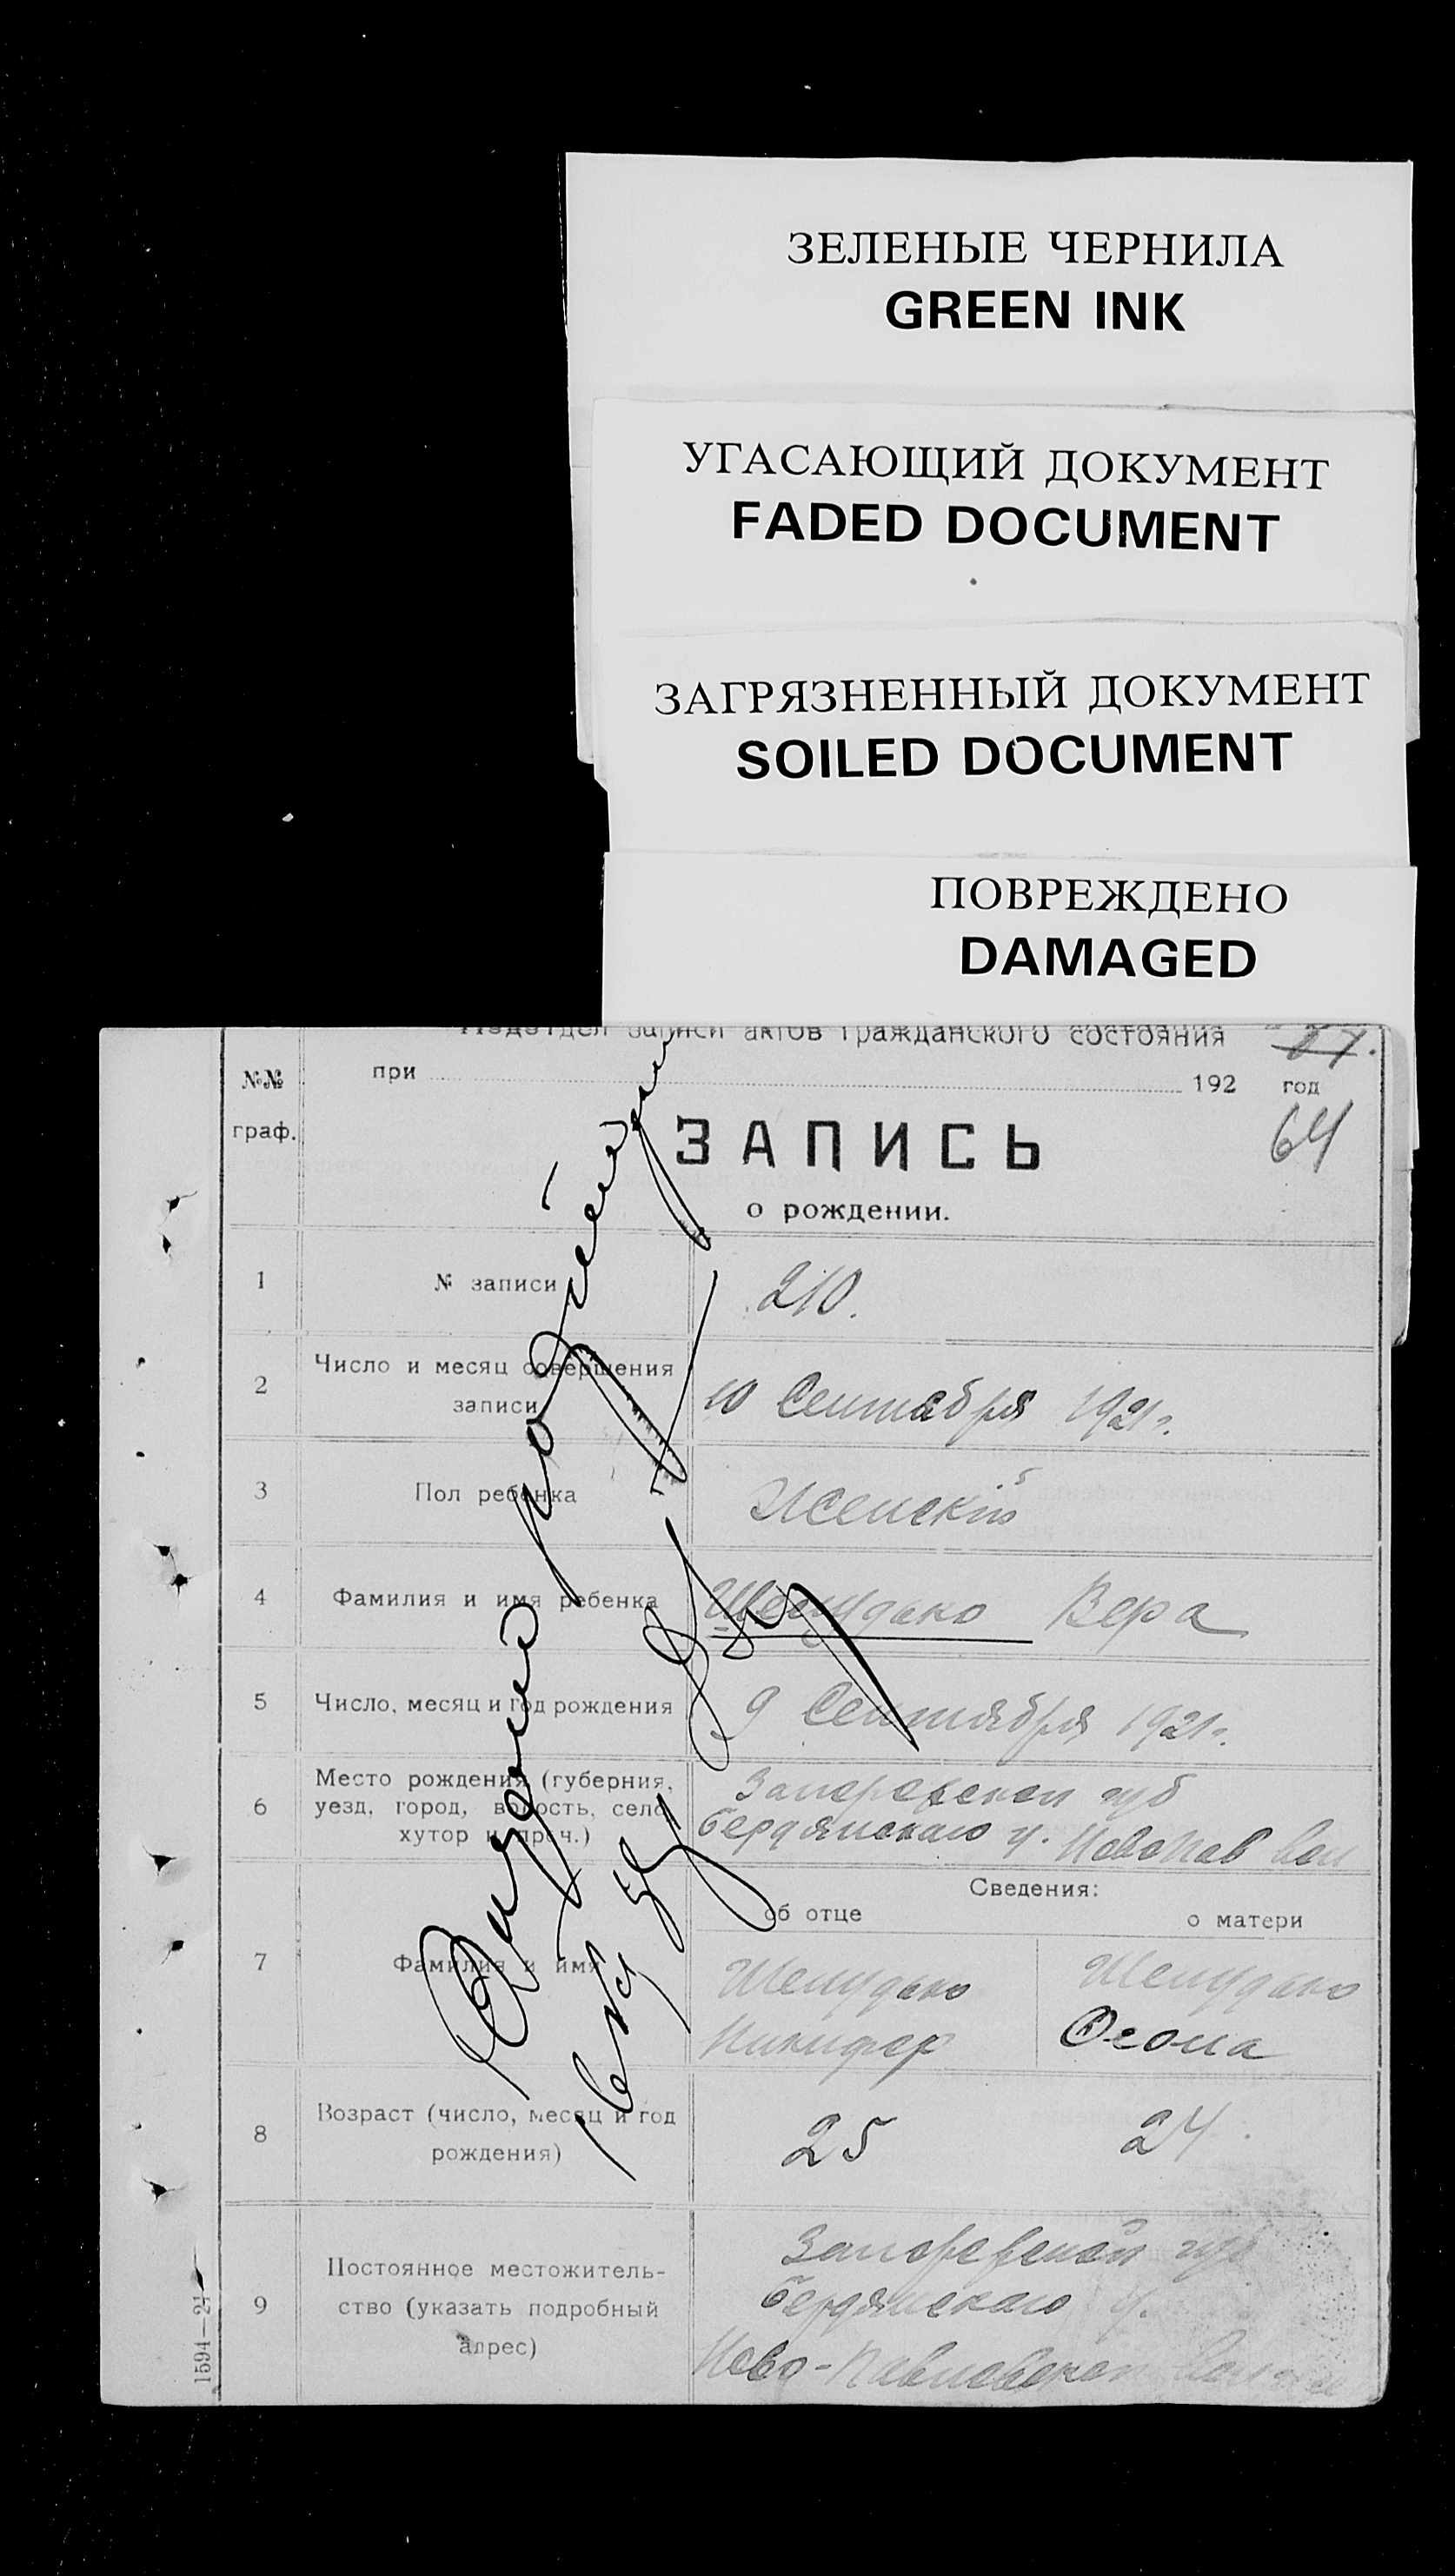 ЗЕЛЕНЫЕ ЧЕРНИЛА
GREEN INK
УГАСАЮЩИЙ ДОКУМЕНТ
FADED DOCUMENT
ЗАГРЯЗНЕННЫЙ ДОКУМЕНТ
SOILED DOCUMENT
ПОВРЕЖДЕНО
DAMAGED
Подотдел записи актов гражданского состояния
№№ граф.
при 192 год
64
ЗАПИСЬ
о рождении.
1 № записи 210.
2 Число и месяц совершения
записи 10 Сентября 1921 г.
3 Пол ребенка Женский
4 Фамилия и имя ребенка Шемудько Вера
5 Число, месяц и год рождения 9 Сентября 1921 г.
Место рождения (губерния, губ
6 уезд, город, волость, село, Бердянскаго у. Новопав вол
хутор и проч.)
Сведения:
об отце о матери
7 Фамилия и имя Шемудько Шемудько
Никифор
8 Возраст (число, месяц и год
рождения) 25 24
Постоянное местожитель- губ
9 ство (указать подробный Бердянскаго у.
адрес) Ново-Павловской
1594—21